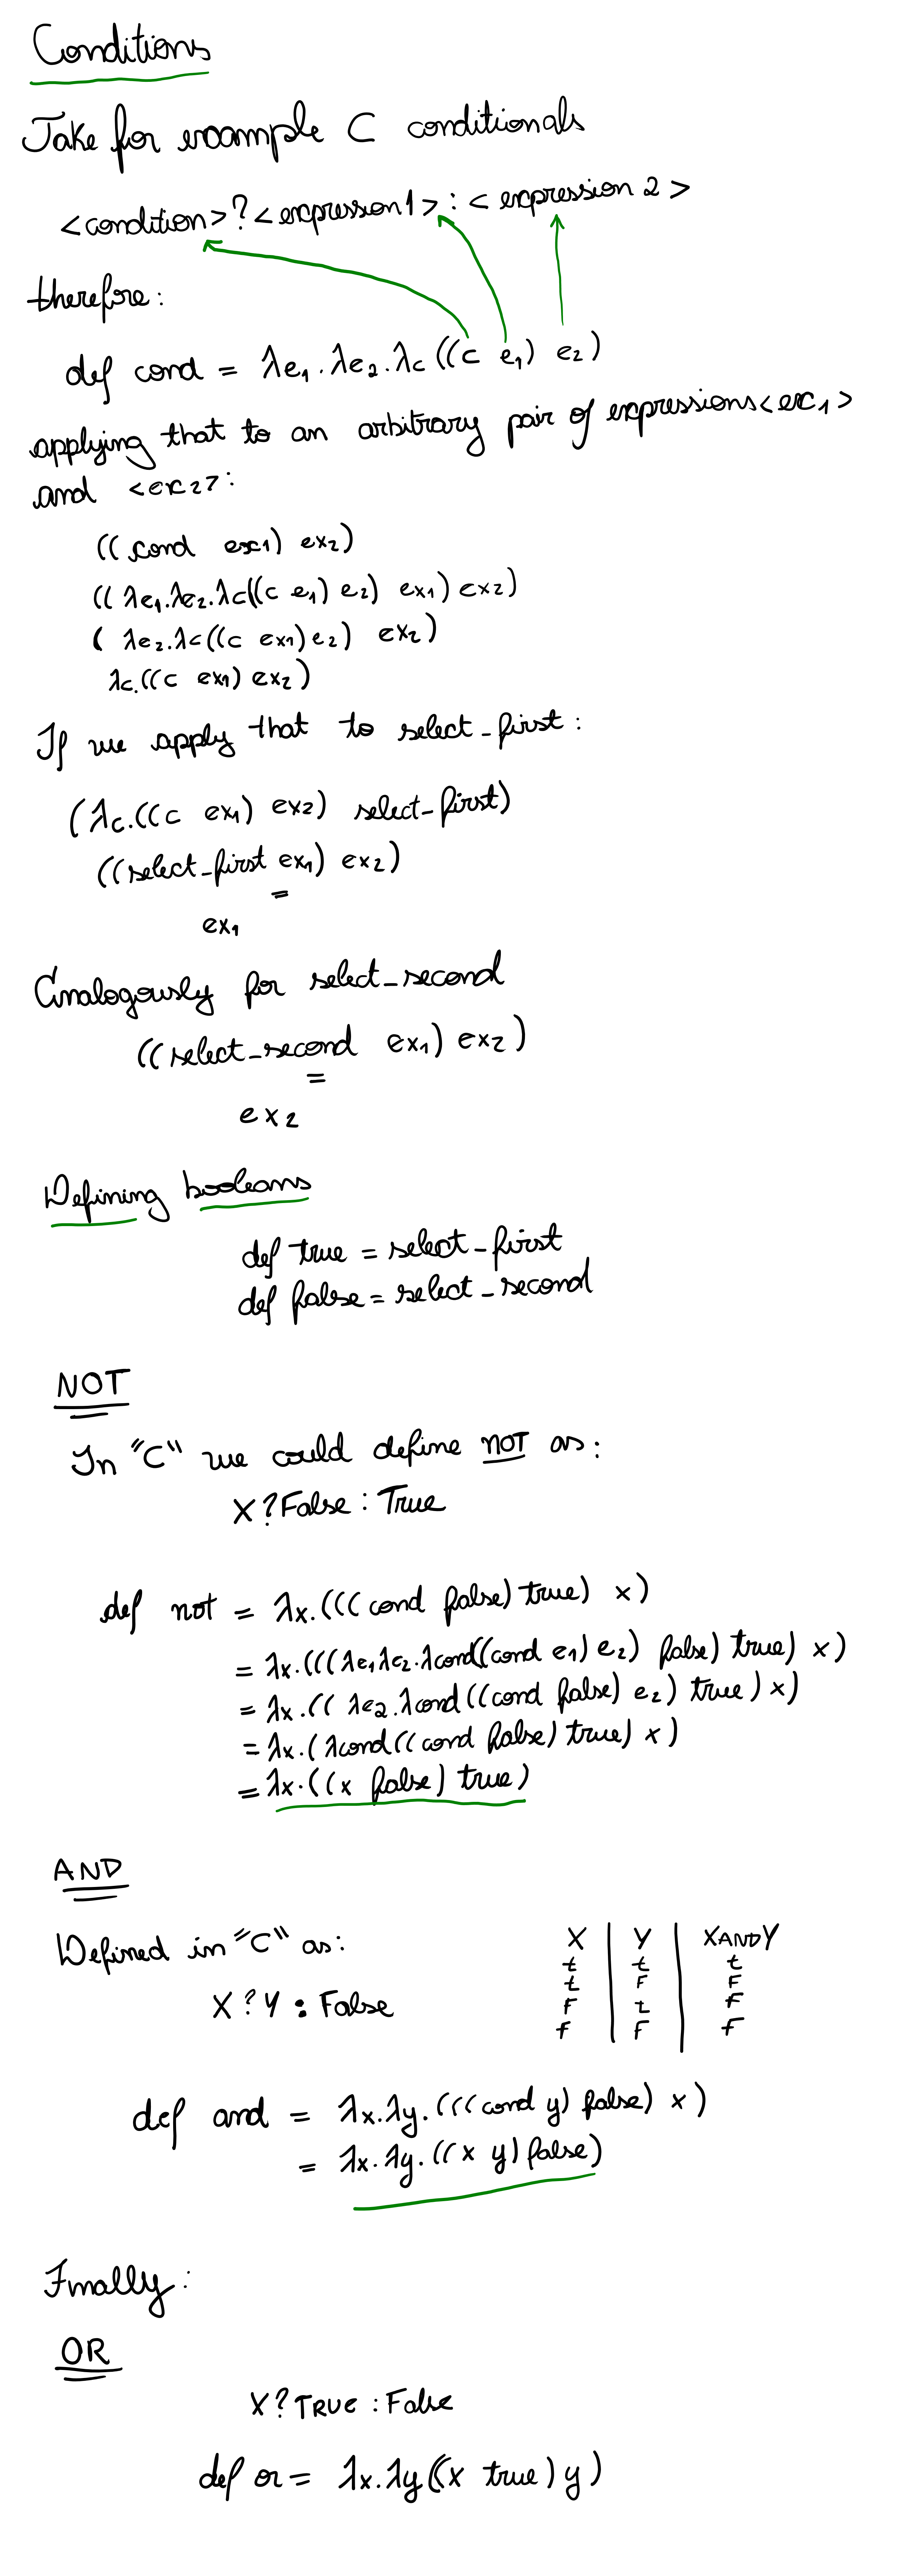 Conditions
Take for example C conditionals
<condition>?<expression1>:<expression 2>
therefore:
def cond = λe₁.λe₂.λc((c e₁) e₂)
applying that to an arbitrary pair of expressions<ex₁>
and <ex₂>:
((cond ex1) ex₂)
((λe₁.λe₂.λc((c e₁) e₂) ex₁) ex₂)
( λe₂.λc((c ex₁) e₂) ex₂)
λc.((c ex₁) ex₂)
If we apply that to select_first:
(λc.((c ex₁) ex₂) select_first)
((select_first ex₁) ex₂)
=
ex₁
Analogously for select_second
((select_second ex₁) ex₂)
=
ex₂
Defining booleans
def true = select_first
def false = select_second
NOT
In "C" we could define NOT as:
X?False:True
def not = λx.(((cond false) true) x)
= λx.(((λe₁λe₂.λcond((cond e₁) e₂) false) true) x)
= λx.(( λe₂.λcond((cond false) e₂) true) x)
= λx.(λcond((cond false) true) x)
= λx.((x false) true)
AND
Defined in "C" as:
X?Y:False
X | Y | XANDY
t | t | t
t | F | F
F | t | F
F | F | F
def and = λx.λy.(((cond y) false) x)
= λx.λy.((x y) false)
Finally:
OR
X?TRUE:False
def or = λx.λy((x true) y)